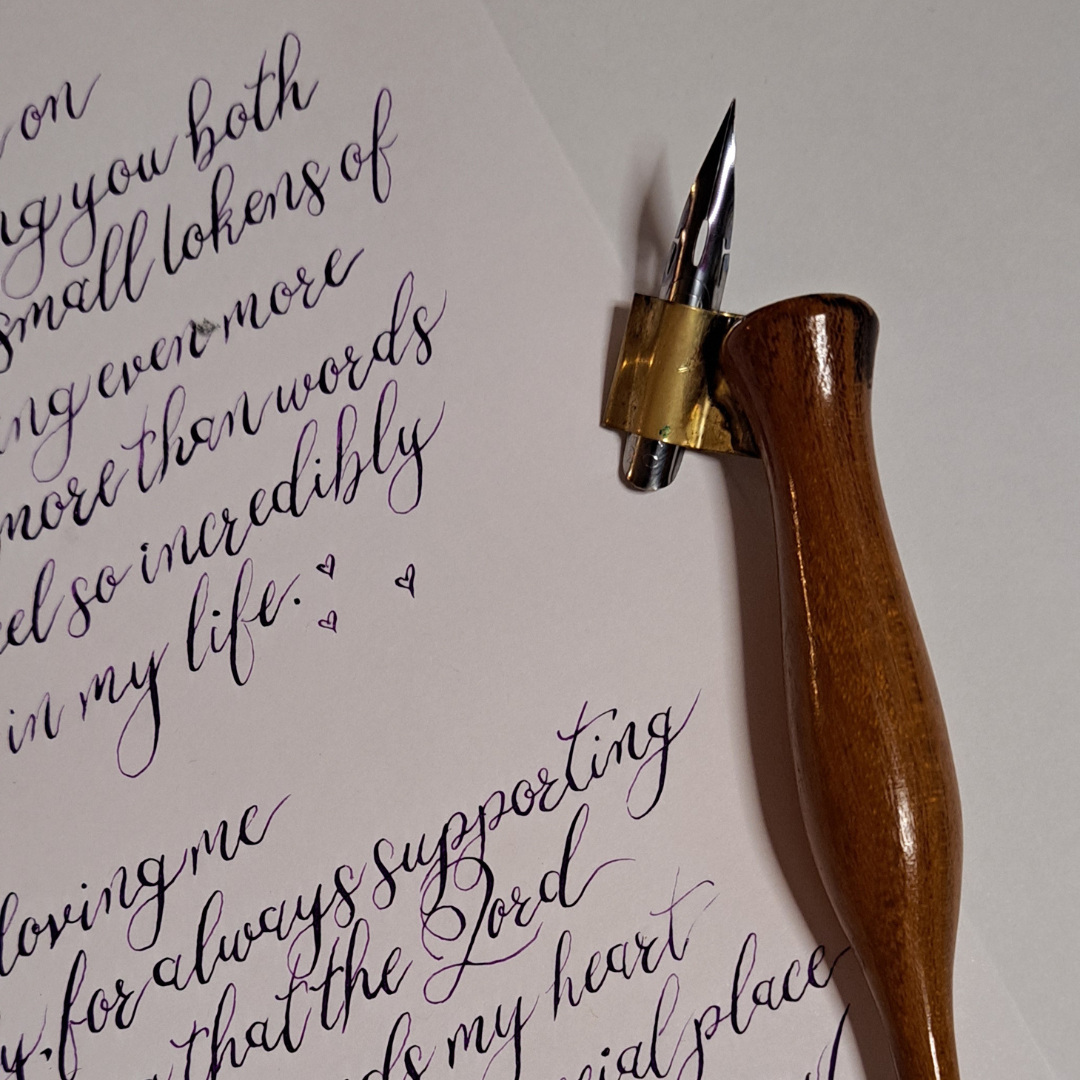 on
you both
small tokens of
even more
more than words
so incredibly
in my life.
loving me
for always supporting
that the Lord
my heart
place